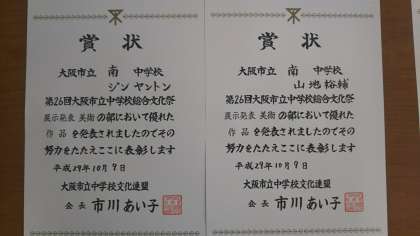 賞状
大阪市立 南 中学校
ジン ヤントン
第26回大阪市立中学校総合文化祭
展示発表 美術 の部において優れた
作品 を発表されましたのでその
努力をたたえここに表彰します
平成29年10月9日
大阪市立中学校文化連盟
会長 市川あい子
賞状
大阪市立 南 中学校
山地裕輔
第26回大阪市立中学校総合文化祭
展示発表 美術 の部において優れた
作品 を発表されましたのでその
努力をたたえここに表彰します
平成29年10月9日
大阪市立中学校文化連盟
会長 市川あい子